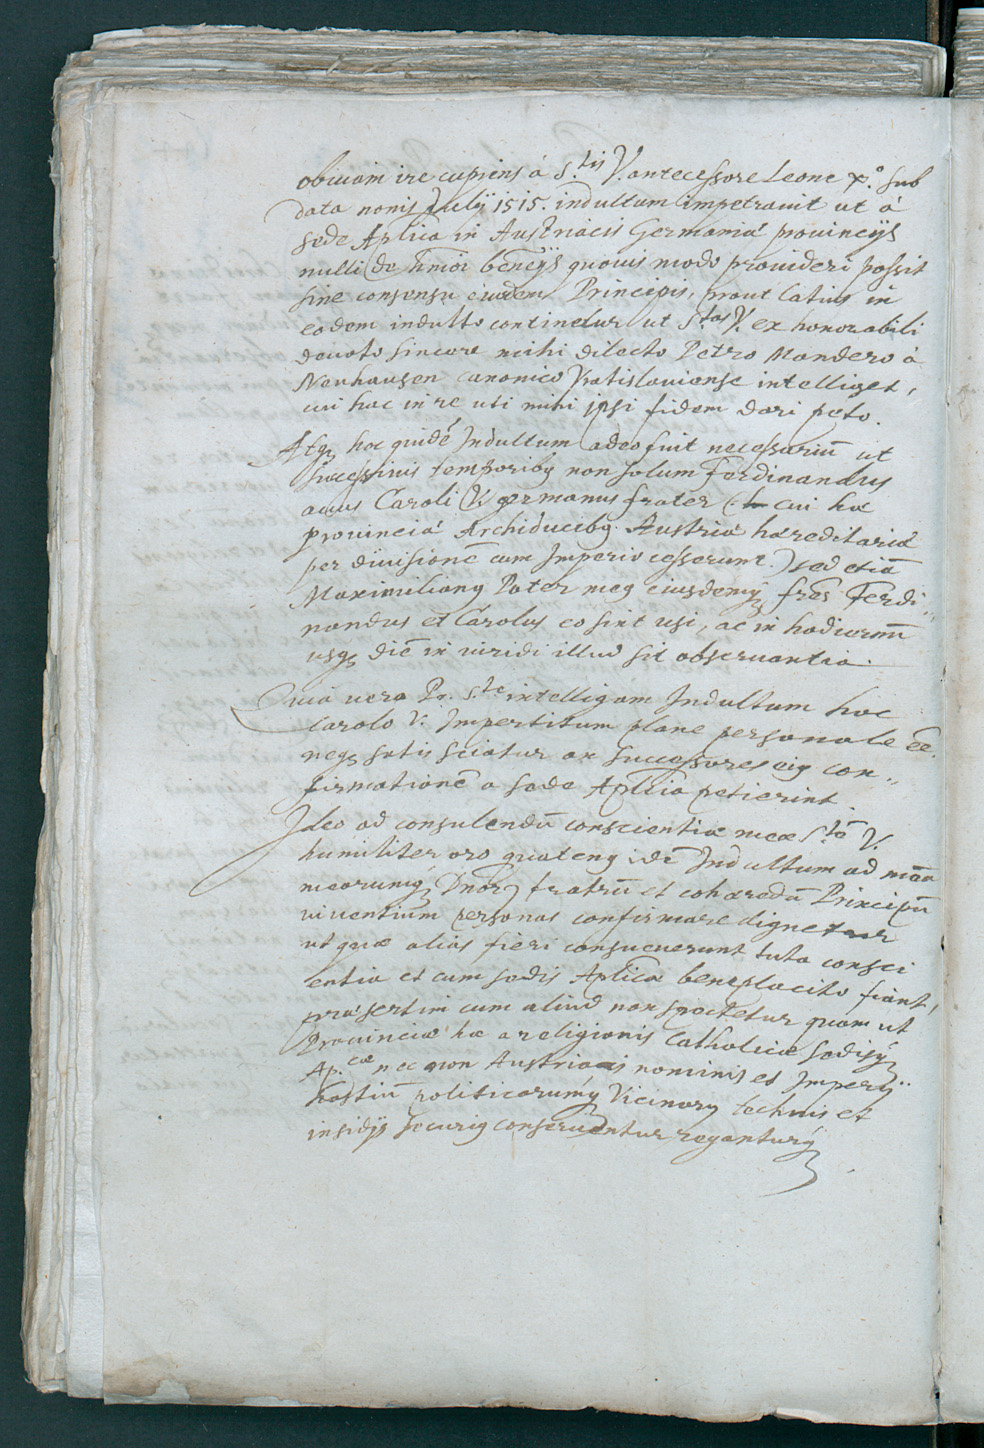 obuiam ire cupiens à S.tis V. antecessore Leone X.o sub
data nonis Julij 1515. indultum impetrauit ut à
sede Aplica in Austriacis Germaniæ prouincijs
nulli de hmōi benēijs quouis modo prouideri possit
sine consensu eiusdem Principis, prout latius in
eodem indulto continetur ut S.tas V. ex honorabili
deuoto sincere mihi dilecto Petro Mandero à
Neuhausen canonico Vratislauiense intelliget,
cui hac in re uti mihi ipsi fidem dari peto.
Atq hoc quidē Indultum adeo fuit necessariū ut
successiuis temporibq non solum Ferdinandus
auus Caroli V. germanus frater (. cui hæ
prouinciæ Archiducibq Austriæ hæreditariæ
per diuisionē cum Imperio cesserunt.) sed etiā
Maximilianq Pater meq eiusdemq frēs Ferdi„
nandus et Carolus eo sint usi, ac in hodiernū
usq diē in uiridi illud sit obseruantia.
Quia uero Pr. S.te intelligam Indultum hoc
Carolo V. Impertitum plane personale eē
neq satis sciatur an successores eiq con„
firmationē a sede Aplica petierint.
Ideo ad consulendū conscientiæ meæ S.tā V.
humiliter oro quatenq idē Indultum ad meā
meorumq Dnorq fratrū et cohæredū Principū
uiuentium personas confirmare dignetur
ut quæ alias fieri consueuerunt tuta consci
entia et cum sedis Aplicæ beneplacito fiant,
præsertim cum aliud non spectetur quam ut
Prouinciæ hæ a religionis Catholicæ sedisq
Ap.cæ nec non Austriaci nominis et Imperij
hostiū politicorumq Vicinorq technis et
insidijs securiq conseruentur reganturq